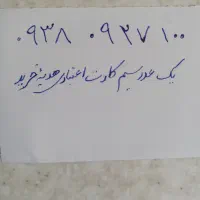 ۰۹۳۸ ۰۹۲۷۱۰۰
یک عدد سیم کارت اعتباری هدیه خرید